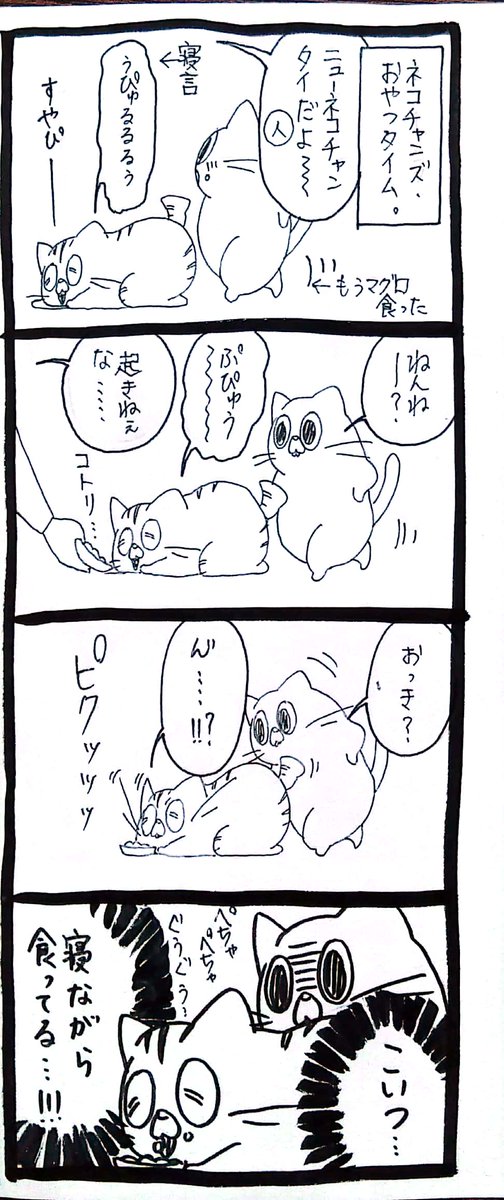 ネコチャンズ、
おやつタイム。
ニューネコチャン
タイだよ〜〜
人
寝言
うぴゅるるるぅ
すやぴ――
もうマグロ
食った
ねんね
ー？
ぷぴゅう
〜〜〜
起きねぇ
な……
コトリ…
おっき？
ん゛……!!?
ピクッッッ
ぺちゃ
ぺちゃ
ぐうぐう…
こいつ…
寝ながら
食ってる…!!!